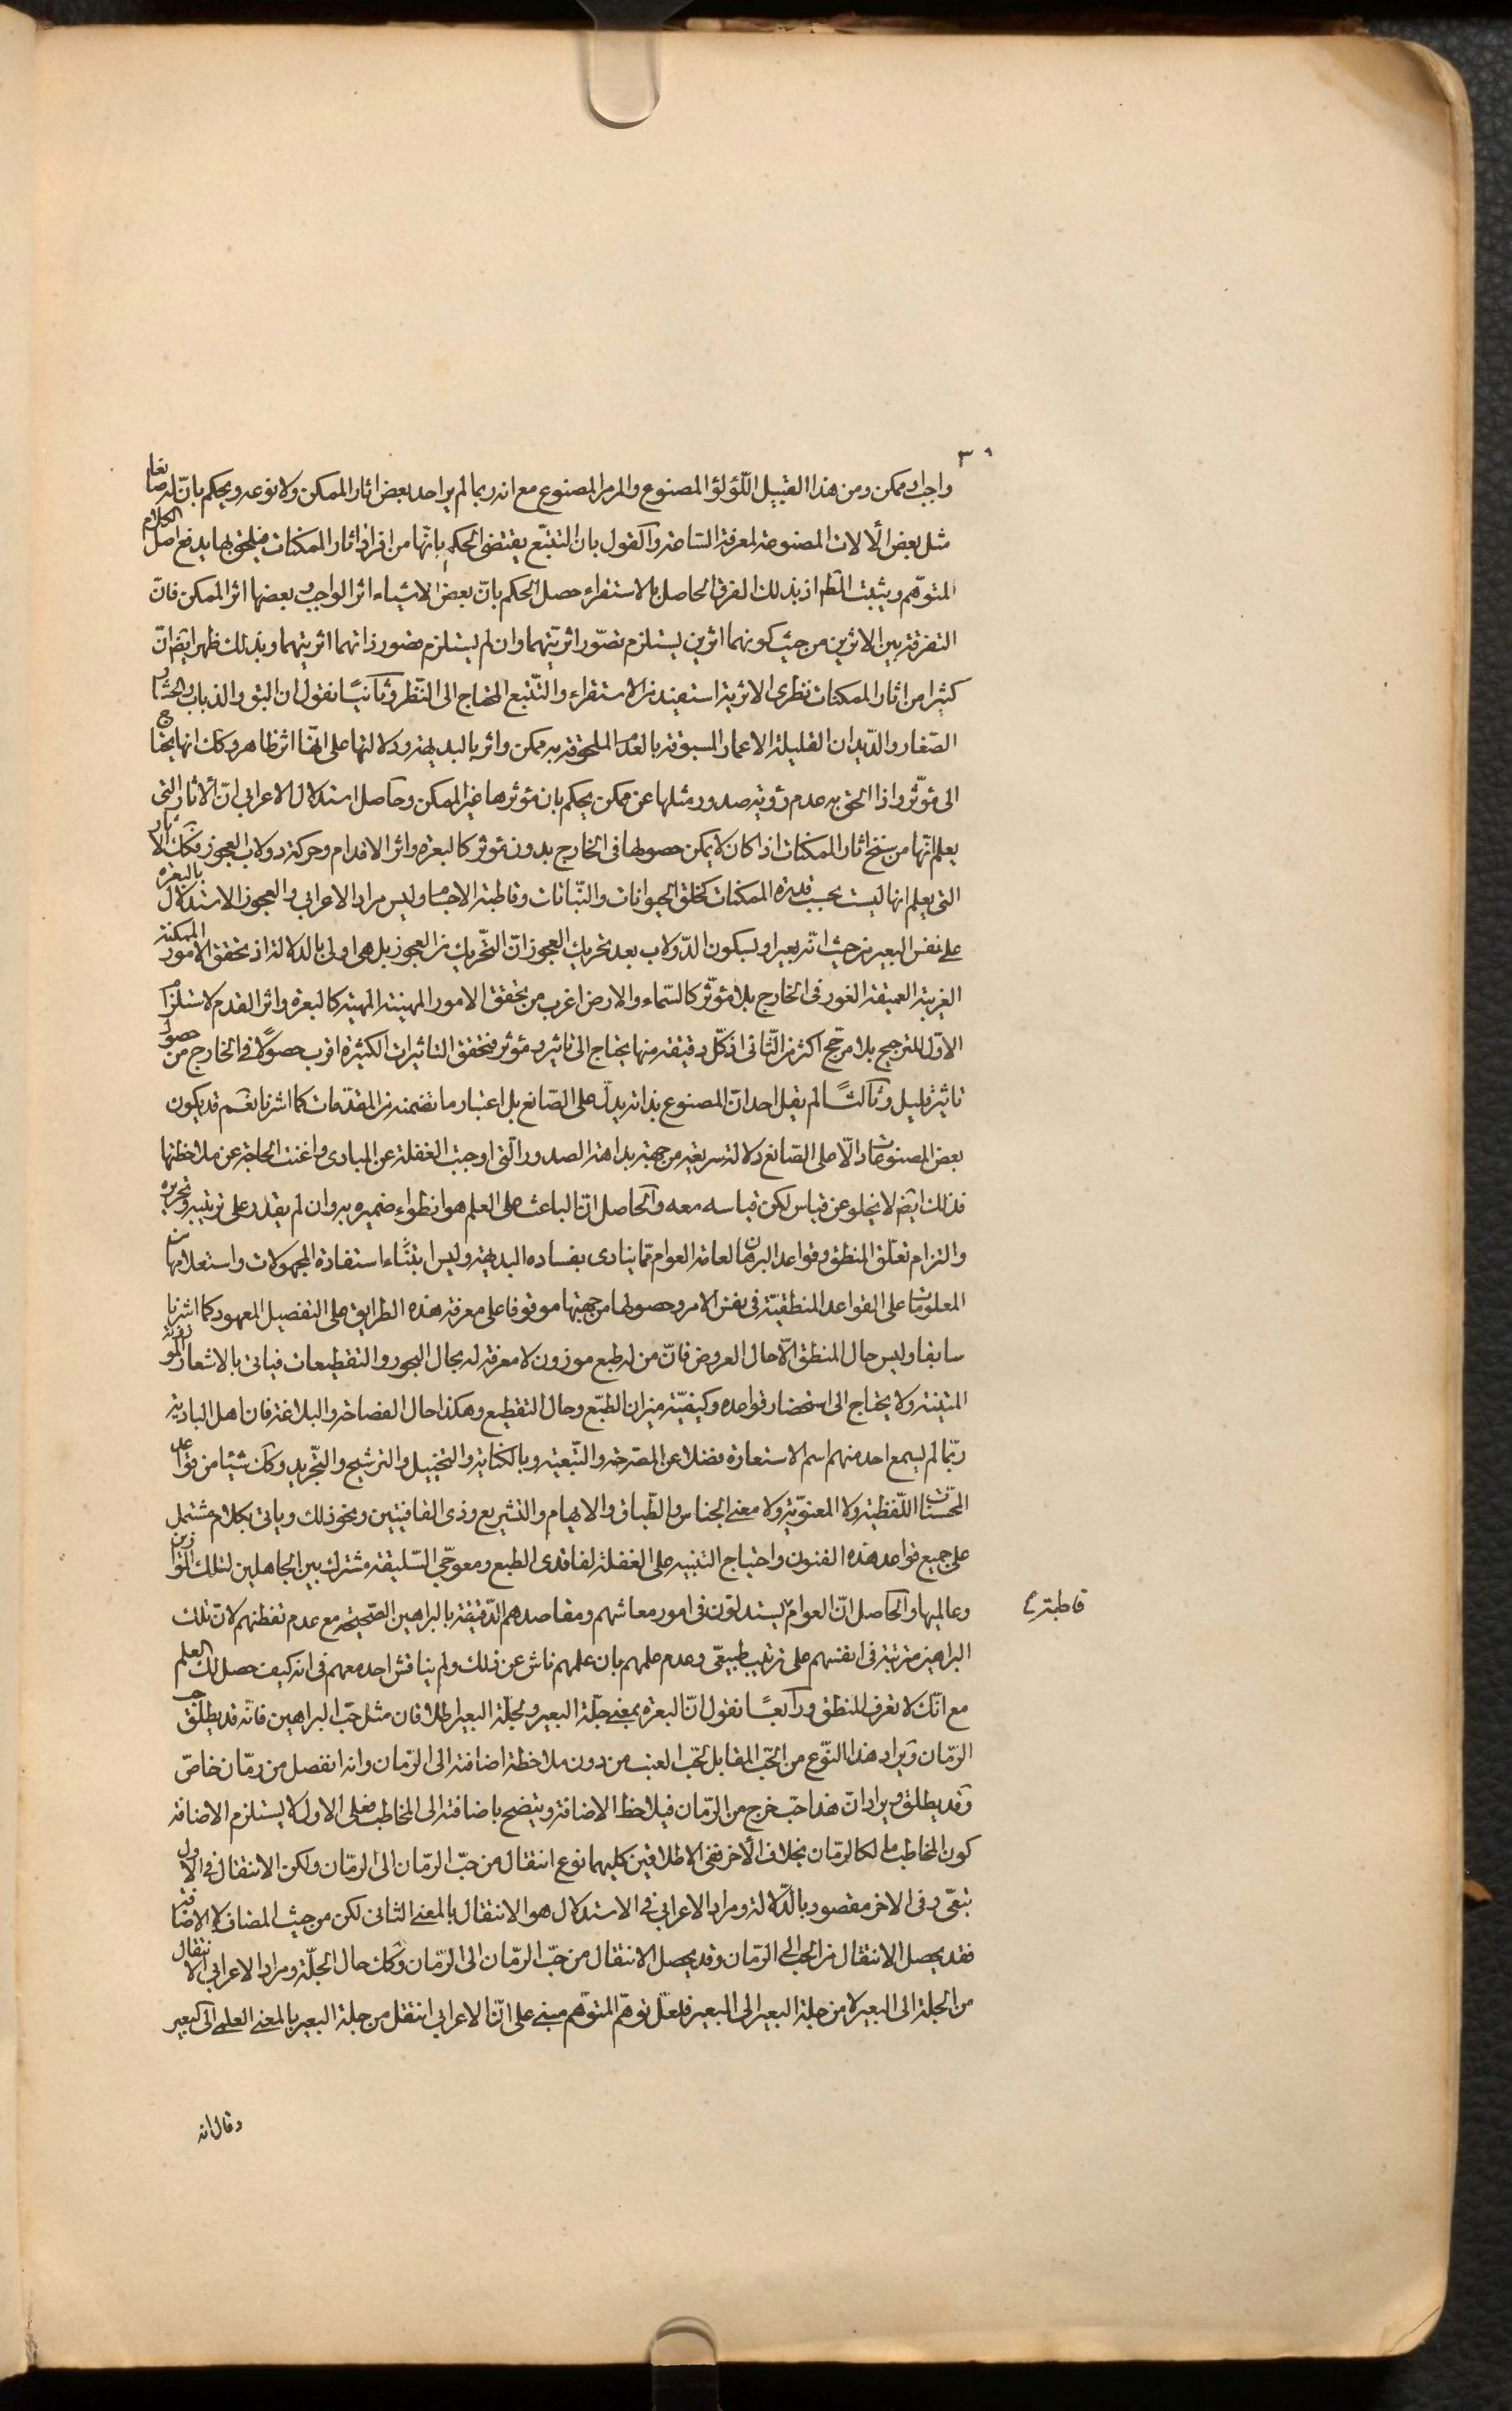 ٣٩
واجب او ممكن ومن هذا القبيل اللّؤلؤ المصنوع والمرمر المصنوع مع انه ربما لم ير احد بعض اثار الممكن ولا نوعه ويحكم بانّ له صانعا
مثل بعض الآلات المصنوعة لمعرفة الساعة والقول بان التتبّع يقتضى الحكم بانّها من افراد اثار الممكنات فيلحق بها يدفع اصل الكلام
المتوهّم ويثبت المط اذ بذلك الفرق الحاصل بالاستقراء حصل الحكم بانّ بعض الاشياء اثر الواجب وبعضها اثر الممكن فانّ
التفرقة بين الاثرين من حيث كونهما اثرين يستلزم تصوّر اثريّتهما وان لم يستلزم تصور ذاتهما اثريتهما وبذلك ظهر ايض انّ
كثيرا من اثار الممكنات نظرى الاثرية استفيد من الاستقراء والتّتبع المحتاج الى النّظر وثانيًا نقول ان البق والذباب والحشار
الصّغار والدّيدان القليلة الاعمار المسبوقة بالعدم الملحوقة به ممكن واثر بالبديهة ودلالتها على انّها اثر ظاهر وكك انها يحتاج
الى مؤثّر واذا الحق به عدم رؤية صدور مثلها عن ممكن يحكم بان مؤثرها غير الممكن وحاصل استدلال الاعرابى انّ الآثار التى
يعلم انّها من سنخ اثار الممكنات اذا كان لا يمكن حصولها فى الخارج بدون مؤثر كالبعرة واثر الاقدام وحركة دولاب العجوز فكك الاثار
التى يعلم انها ليست بحسب قدرة الممكنات كخلق الحيوانات والنّباتات وقاطبة الاجسام وليس مراد الاعرابى والعجوز الاستدلال بالبعرة
على نفس البعير من حيث انّه بعير او لسكون الدّولاب بعد تحريك العجوز انّ التّحريك من العجوز بل هى اولى بالدلالة اذ تحقق الامور الممكنة
الغريبة العميقة الغور فى الخارج بلا مؤثّر كالسّماء والارض اغرب من تحقق الامور المهينة كالبعرة واثر القدم لاستلزام
الاوّل للترجيح بلا مرجّح اكثر من الثّانى اذ كلّ دقيقة منها يحتاج الى تاثير ومؤثر فتحقق التاثيرات الكثيرة اقرب حصولًا فى الخارج من حصول
تاثير قليل وثالثًا لم يقل احد انّ المصنوع بذاته يدلّ على الصّانع بل اعتبار ما تضمنه من المقدّمات كما اشرنا نعم قد يكون
بعض المصنوعات دالّا على الصّانع دلالة سريعة من جهة بداهة الصدور الّتى اوجبت الغفلة عن المبادى واغنت الحاجة عن ملاحظتها
فذلك ايض لا يخلو عن قياس لكن قياسه معه والحاصل انّ الباعث على العلم هو انطواء ضميره به وان لم يقدر على ترتيبه وتحريره
والتزام تعلّق المنطق وقواعد البرهان لعامة العوام ممّا ينادى بفساده البديهة وليس ابتناء استفادة المجهولات واستعلامها من
المعلومات على القواعد المنطقيّة فى نفس الامر وحصولها من جهتها موقوفا على معرفة هذه الطرايق على التفصيل المعهود كما اشرنا
سابقا وليس حال المنطق الّا حال العروض فانّ من له طبع موزون لا معرفة له بحال البحور والتقطيعات فياتى بالاشعار الموزونة
المتينة ولا يحتاج الى استحضار قواعده وكيفيّة ميزان الطّبع وحال التقطيع وهكذا حال الفصاحة والبلاغة فان اهل البادية
ربّما لم يسمع احد منهم اسم الاستعارة فضلا عن المصرحة والتّبعية وبالكناية والتخييل والترشيح والتّجريد وكك شيئا من قواعد
المحسّنات اللّفظية ولا المعنويّة ولا معنى الجناس والطّباق والايهام والتشريع وذى القافيتين ونحو ذلك وياتى بكلام مشتمل
على جميع قواعد هذه الفنون واحتياج التنبيه على الغفلة لفاقدى الطبع ومعوجّى السّليقة مشترك بين الجاهلين لتلك القوانين
وعالميها والحاصل انّ العوام يستدلون فى امور معاشهم ومقاصدهم الدّقيقة بالبراهين الصّحيحة مع عدم تفطنهم لانّ تلك
قاطبة
البراهين مرتبة فى انفسهم على ترتيب طبيعى وعدم علمهم بان علمهم ناش عن ذلك ولم يناقش احد معهم فى انه كيف حصل لك العلم
مع انّك لا تعرف المنطق ورابعًا نقول انّ البعرة بمعنى جلّة البعير ولجلّة البعير اطلاقان مثل حبّ البراهين فانّه قد يطلق حب
الرّمان ويراد هذا النّوع من الحّب المقابل لحّب العنب من دون ملاحظة اضافته الى الرّمان وانه انفصل من رمّان خاصّ
وقد يطلق ويراد انّ هذا حبّ خرج من الرّمان فيلاحظ الاضافة ويتضح باضافته الى المخاطب فعلى الاول لا يستلزم الاضافة
كون المخاطب مالكا للرمّان بخلاف الآخر ففى الاطلاقين كليهما نوع انتقال من حبّ الرّمان الى الرّمان ولكن الانتقال فى الاول
تبعّى وفى الاخر مقصود بالدّلالة ومراد الاعرابى فى الاستدلال هو الانتقال بالمعنى الثانى لكن من حيث المضاف لا الاضافة
فقد يحصل الانتقال من الحب الى الرّمان وقد يحصل الانتقال من حبّ الرّمان الى الرّمان وكك حال الجلّة ومراد الاعرابى الانتقال
من الجلة الى البعير لا من جلة البعير الى البعير فلعلّ توهّم المتوّهم مبنى على انّ الاعرابى انتقل من جلة البعير بالمعنى العلمى الى البعير
وقال انه